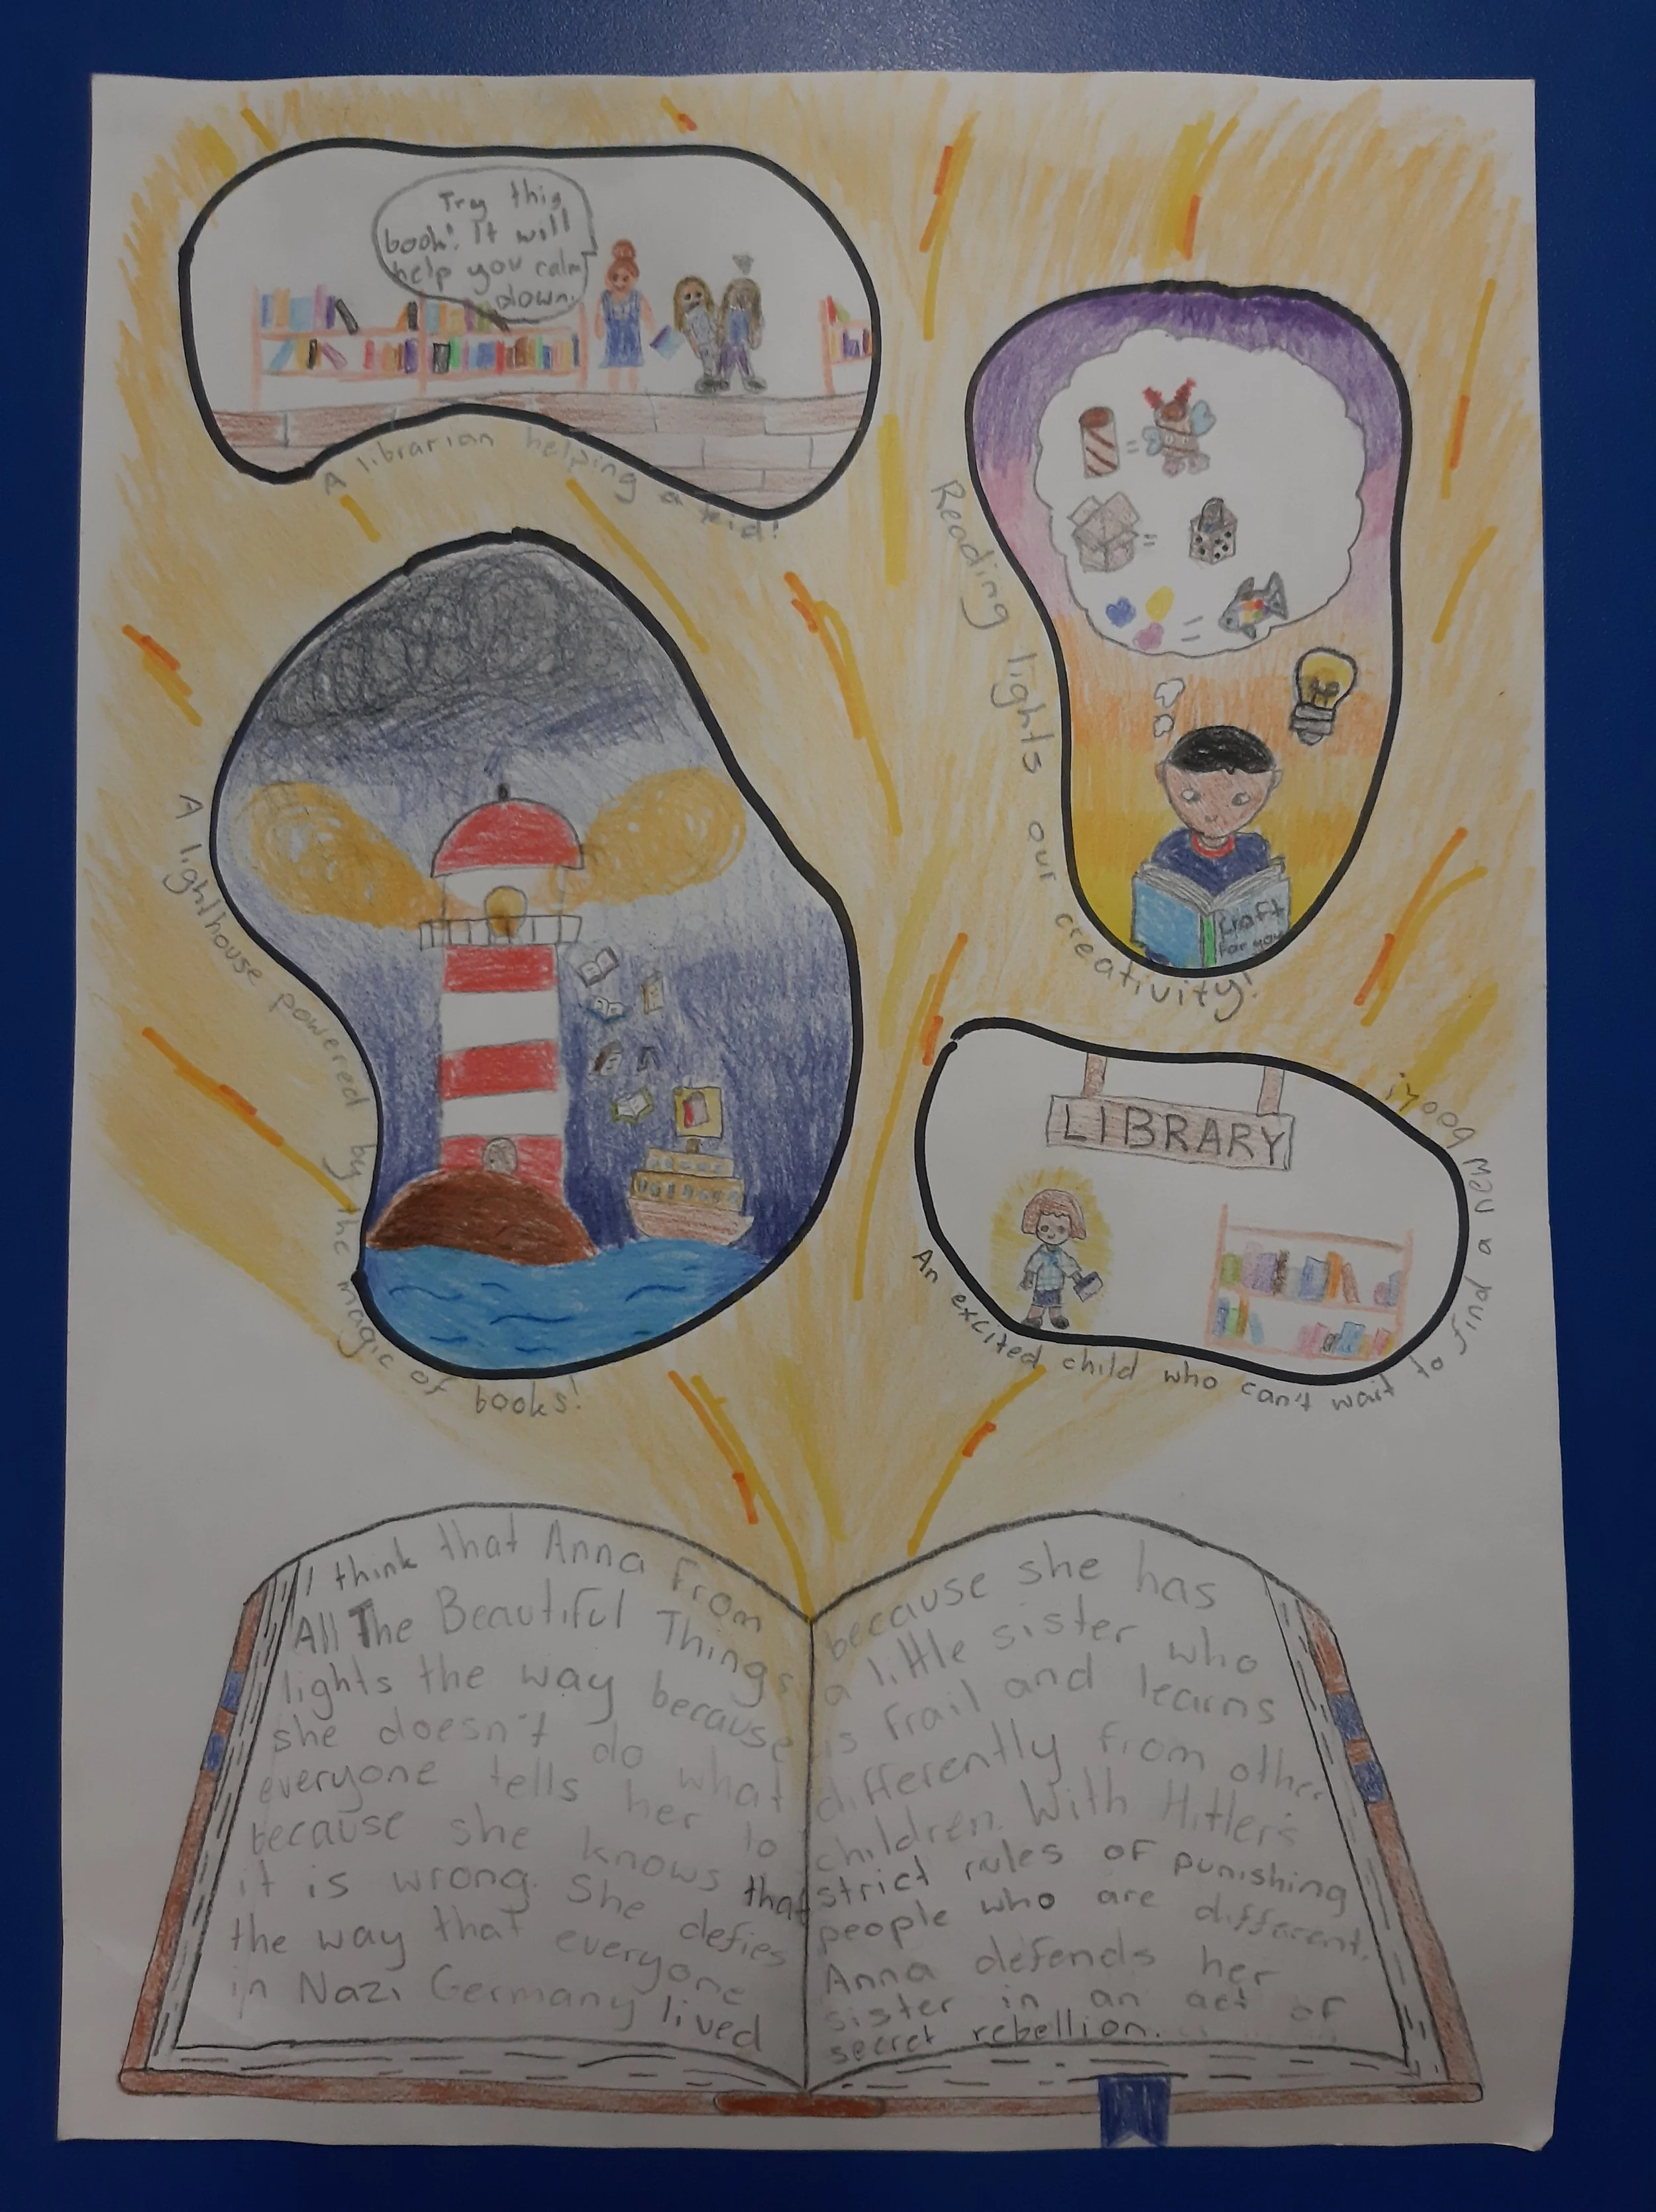 Try this
book! It will
help you calm
down.
A librarian helping a kid!
Reading lights our creativity!
Craft
For you
A lighthouse powered by the magic of books!
LIBRARY
An excited child who can't wait to find a new book!
I think that Anna From
All The Beautiful Things
lights the way because
she doesn't do what
everyone tells her to
because she knows that
it is wrong. She defies
the way that everyone
in Nazi Germany lived
because she has
a little sister who
is frail and learns
differently from other
children. With Hitler's
strict rules of punishing
people who are different.
Anna defends her
sister in an act of
secret rebellion.